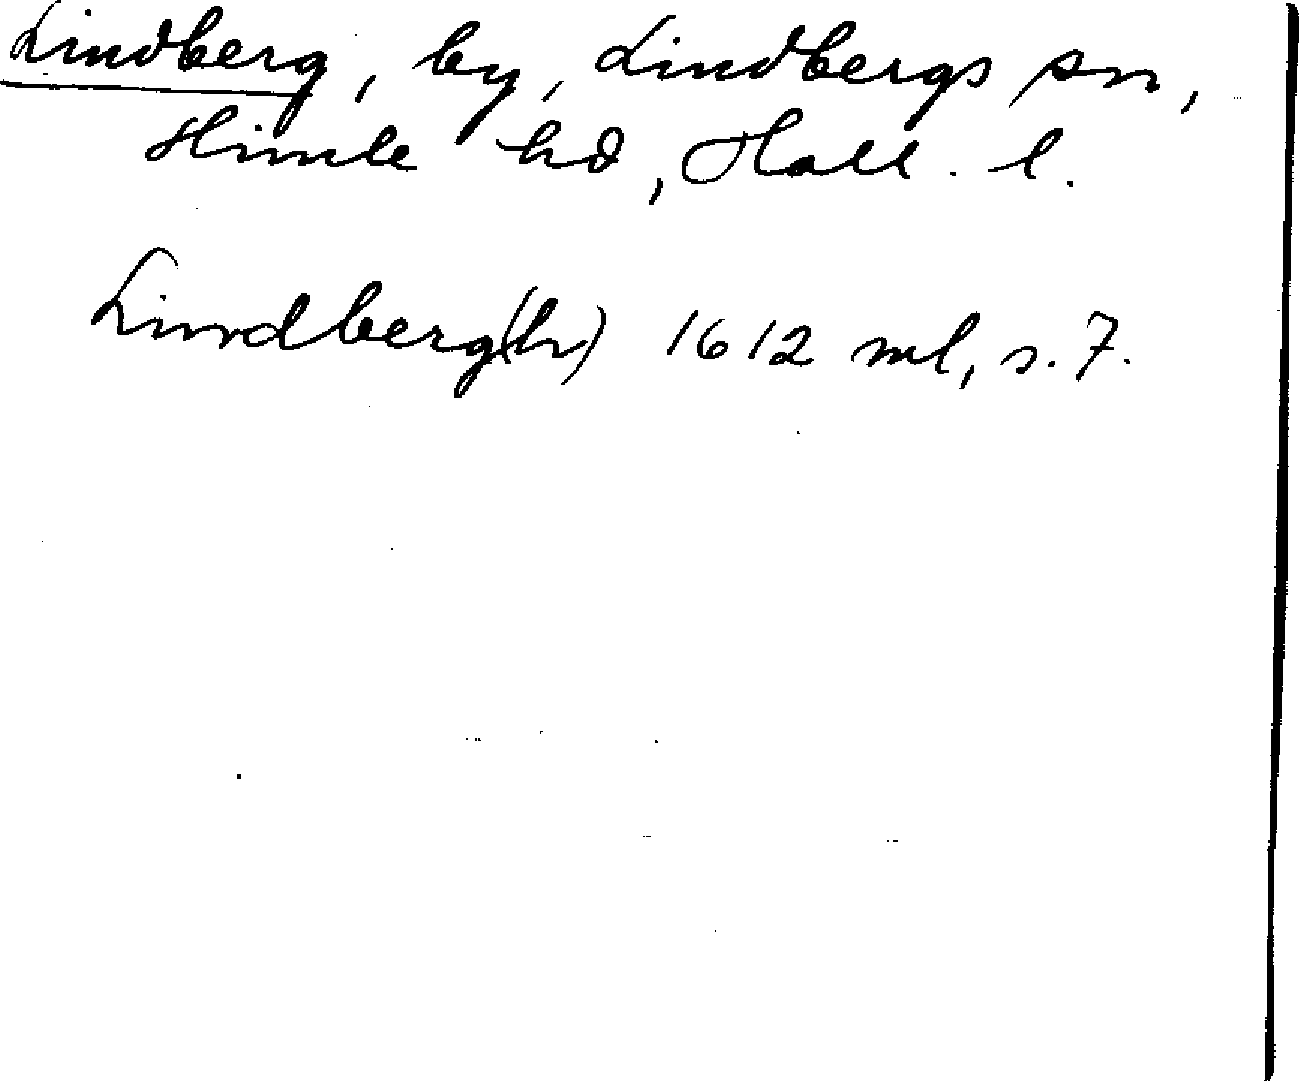 Lindberg, by, Lindbergs sn,
Himle hd, Hall. l.
Lindberg(h) 1612 ml, s. 7.